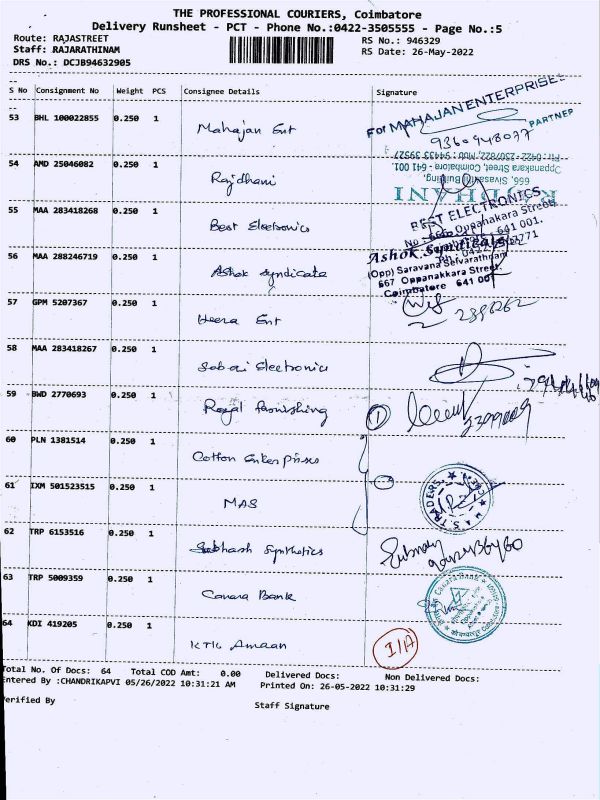 THE PROFESSIONAL COURIERS, Coimbatore
Delivery Runsheet - PCT - Phone No.:0422-3505555 - Page No.:5
Route: RAJASTREET
RS No.: 946329
Staff: RAJARATHINAM
RS Date: 26-May-2022
DRS No.: DCJB94632905
S No Consignment No Weight PCS Consignee Details Signature
53 BHL 100022855 0.250 1 Mahajan Ent
For MAHAJAN ENTERPRISES
PARTNER
9360948077
54 AMD 25046082 0.250 1 Rajdhani
RAJDHANI
666, Sivasakthi Building,
Oppanakara Street, Coimbatore - 641 001.
55 MAA 283418268 0.250 1 Best Electronics
BEST ELECTRONICS
Oppanakara Street
641 001.
56 MAA 288246719 0.250 1 Ashok Syndicate
Ashok Syndicate
(Opp) Saravana Selvarathnam
667 Oppanakkara Street.
Coimbatore 641 001
57 GPM 5207367 0.250 1 Heera Ent
58 MAA 283418267 0.250 1 Sabari Electronics
59 BWD 2770693 0.250 1 Royal furnishing
1
60 PLN 1381514 0.250 1 Cotton Enterprises
61 IXM 501523515 0.250 1 MAS
M.A.S. TRADERS
62 TRP 6153516 0.250 1 Subhash Synthetics
63 TRP 5009359 0.250 1 Canara Bank
64 KDI 419205 0.250 1 KTK Amaan
Total No. Of Docs: 64 Total COD Amt: 0.00 Delivered Docs: Non Delivered Docs:
Entered By :CHANDRIKAPVI 05/26/2022 10:31:21 AM Printed On: 26-05-2022 10:31:29
Verified By
Staff Signature